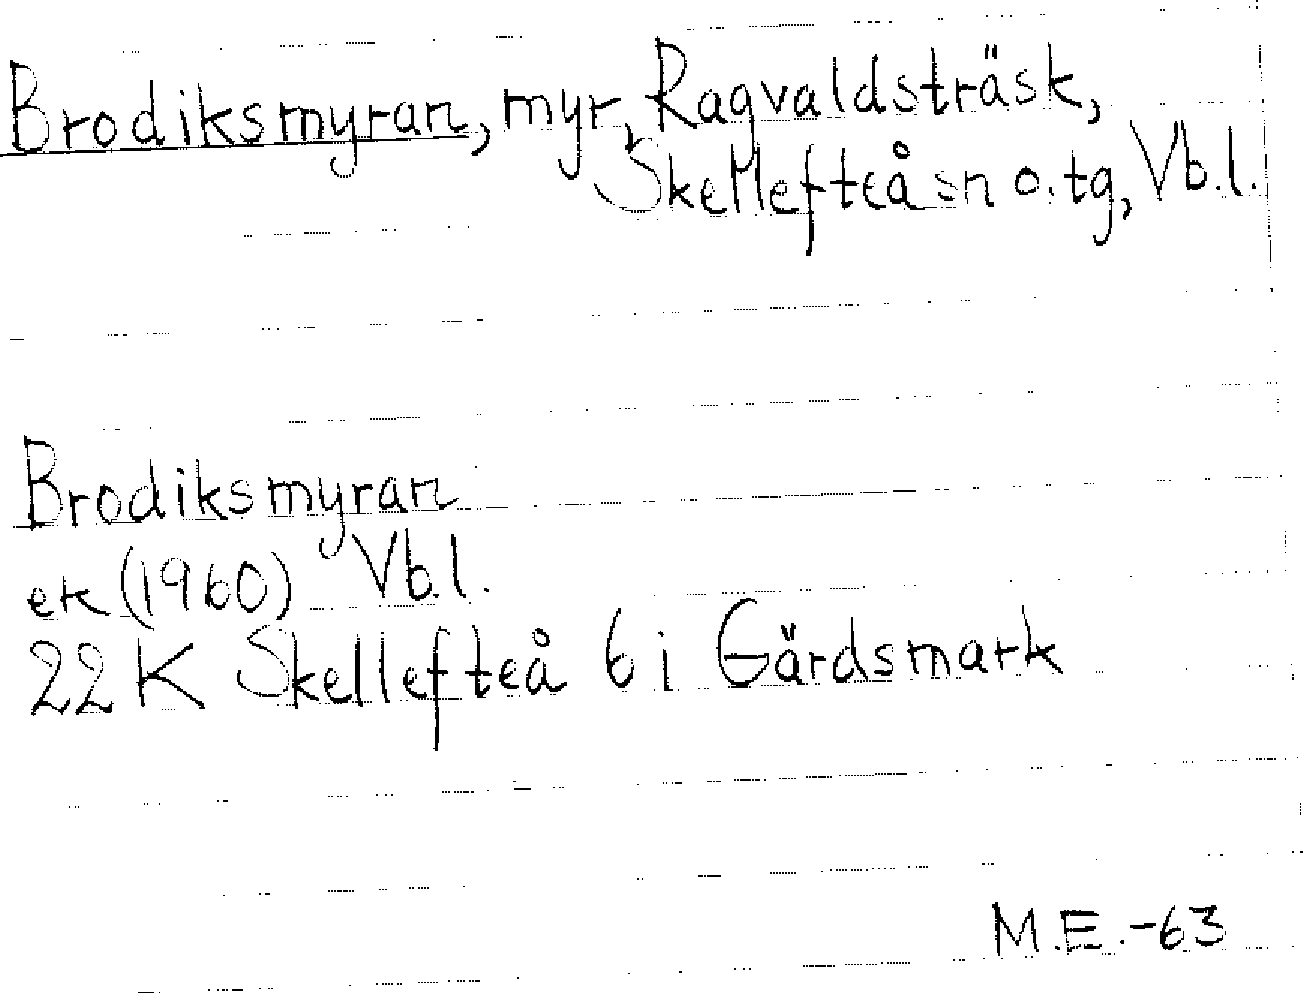 Brodiksmyran, myr, Ragvaldsträsk,
Skellefteå sn o. tg, Vb.l.
Brodiksmyran
ek (1960) Vb.l.
22 K Skellefteå 6 i Gärdsmark
M.E.-63